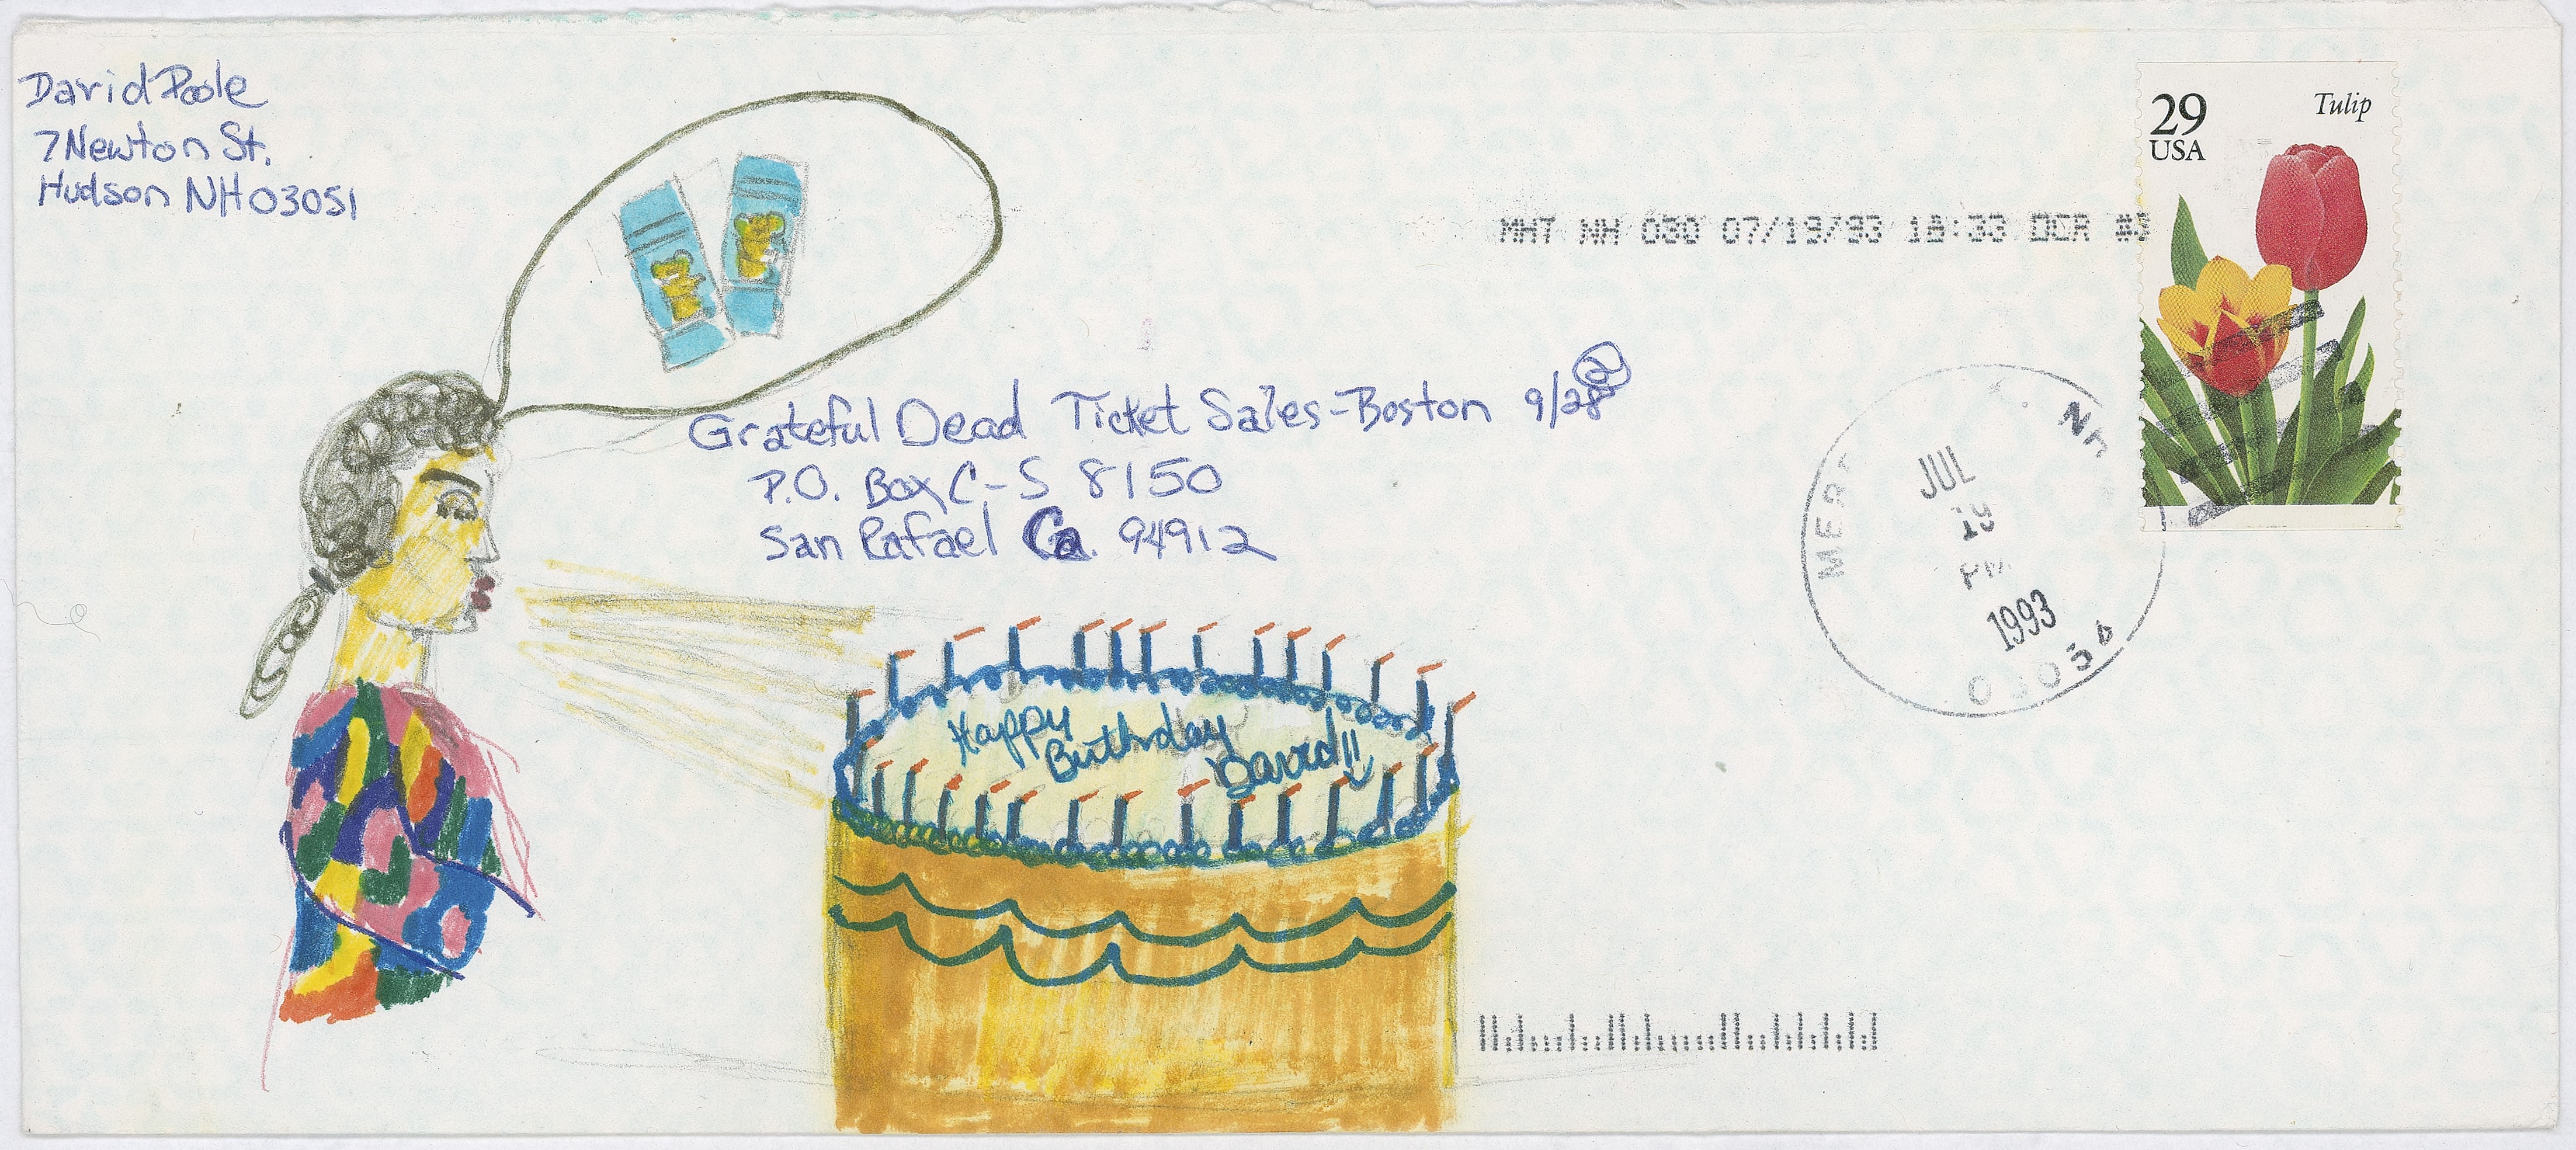 David Poole
7 Newton St.
Hudson NH 03051
29
USA
Tulip
MHT NH 030 07/19/93 18:33 DCR #3
Grateful Dead Ticket Sales-Boston 9/28 2
P.O. Box C-S 8150
San Rafael Ca. 94912
JUL
19
PM
1993
Happy
Birthday
David!!